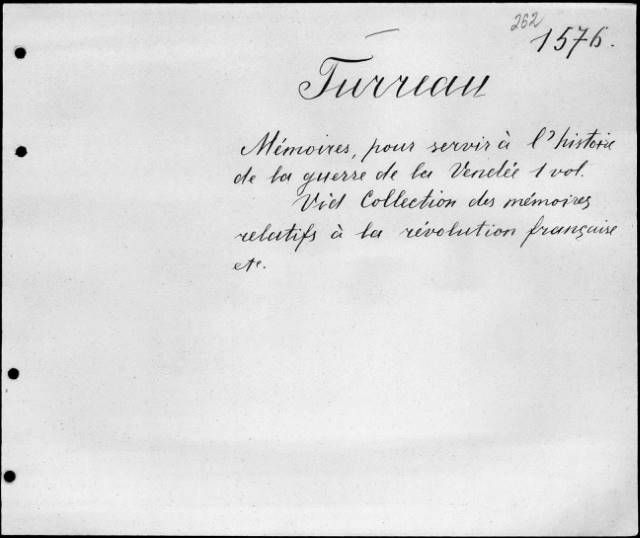 262
1576.
Turreau
Mémoires, pour servir à l'histoire
de la guerre de la Vendée 1 vol.
Vid Collection des mémoires
relatifs à la révolution française
etc.